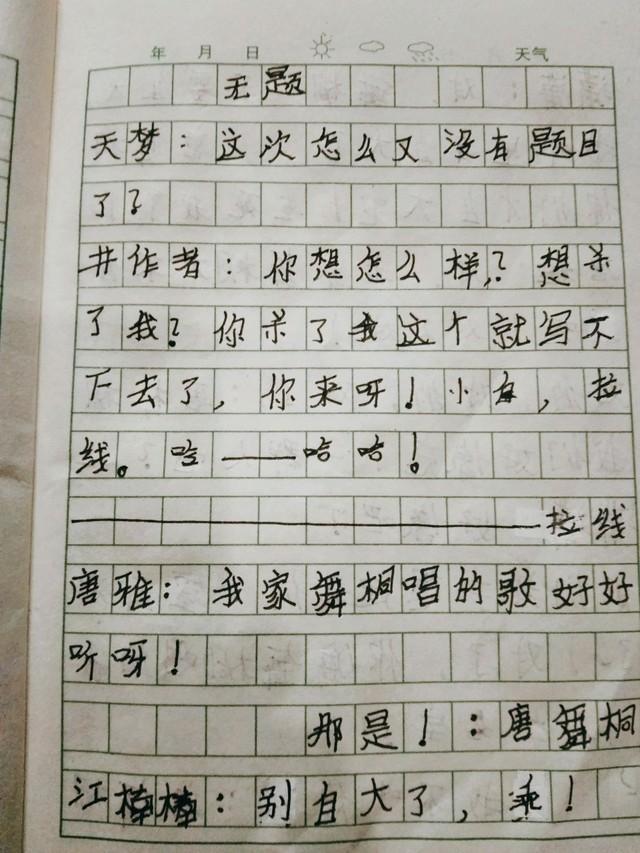 年 月 日 天气
无题
天梦：这次怎么又没有题目
了？
井作者：你想怎么样，？想杀
了我？你杀了我这个就写不
下去了，你来呀！小白，拉
线。哈——哈哈！
——————————拉线
唐雅：我家舞桐唱的歌好好
听呀！
那是！：唐舞桐
江楠楠：别自大了，乖！